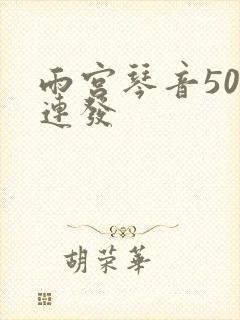 雨宫琴音50
連發
胡荣華